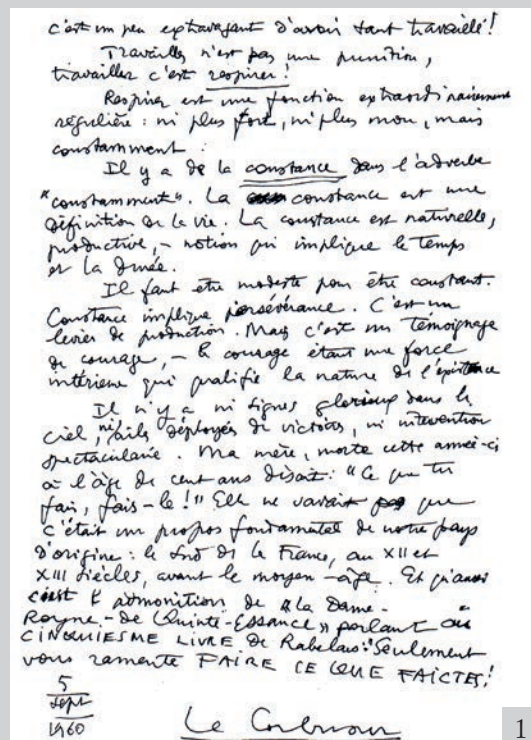 c'est un peu extravagant d'avoir tant travaillé!
Travailler n'est pas une punition,
travailler c'est respirer!
Respirer est une fonction extraordinairement
régulière : ni plus fort, ni plus mou, mais
constamment.
Il y a de la constance dans l'adverbe
"constamment". La constance est une
définition de la vie. La constance est naturelle,
productive, – notion qui implique le temps
et la durée.
Il faut être modeste pour être constant.
Constance implique persévérance. C'est un
levier de production. Mais c'est un témoignage
de courage, – le courage étant une force
intérieure qui qualifie la nature de l'existence
Il n'y a ni signes glorieux dans le
ciel, ni ailes déployées de victoires, ni intervention
spectaculaire. Ma mère, morte cette année-ci
à l'âge de cent ans disait : "Ce que tu
fais, fais-le!" Elle ne savait pas que
c'était un propos fondamental de notre pays
d'origine : le Sud de la France, au XII et
XIII siècles, avant le moyen-âge. Et qu'aussi
c'est l'admonition de «la Dame-
Royne-de Quinte-Essance» parlant au
CINQUIESME LIVRE de Rabelais : "Seulement
vous ramente FAIRE CE QUE FAICTES!
5
sept
1960
Le Corbusier
1